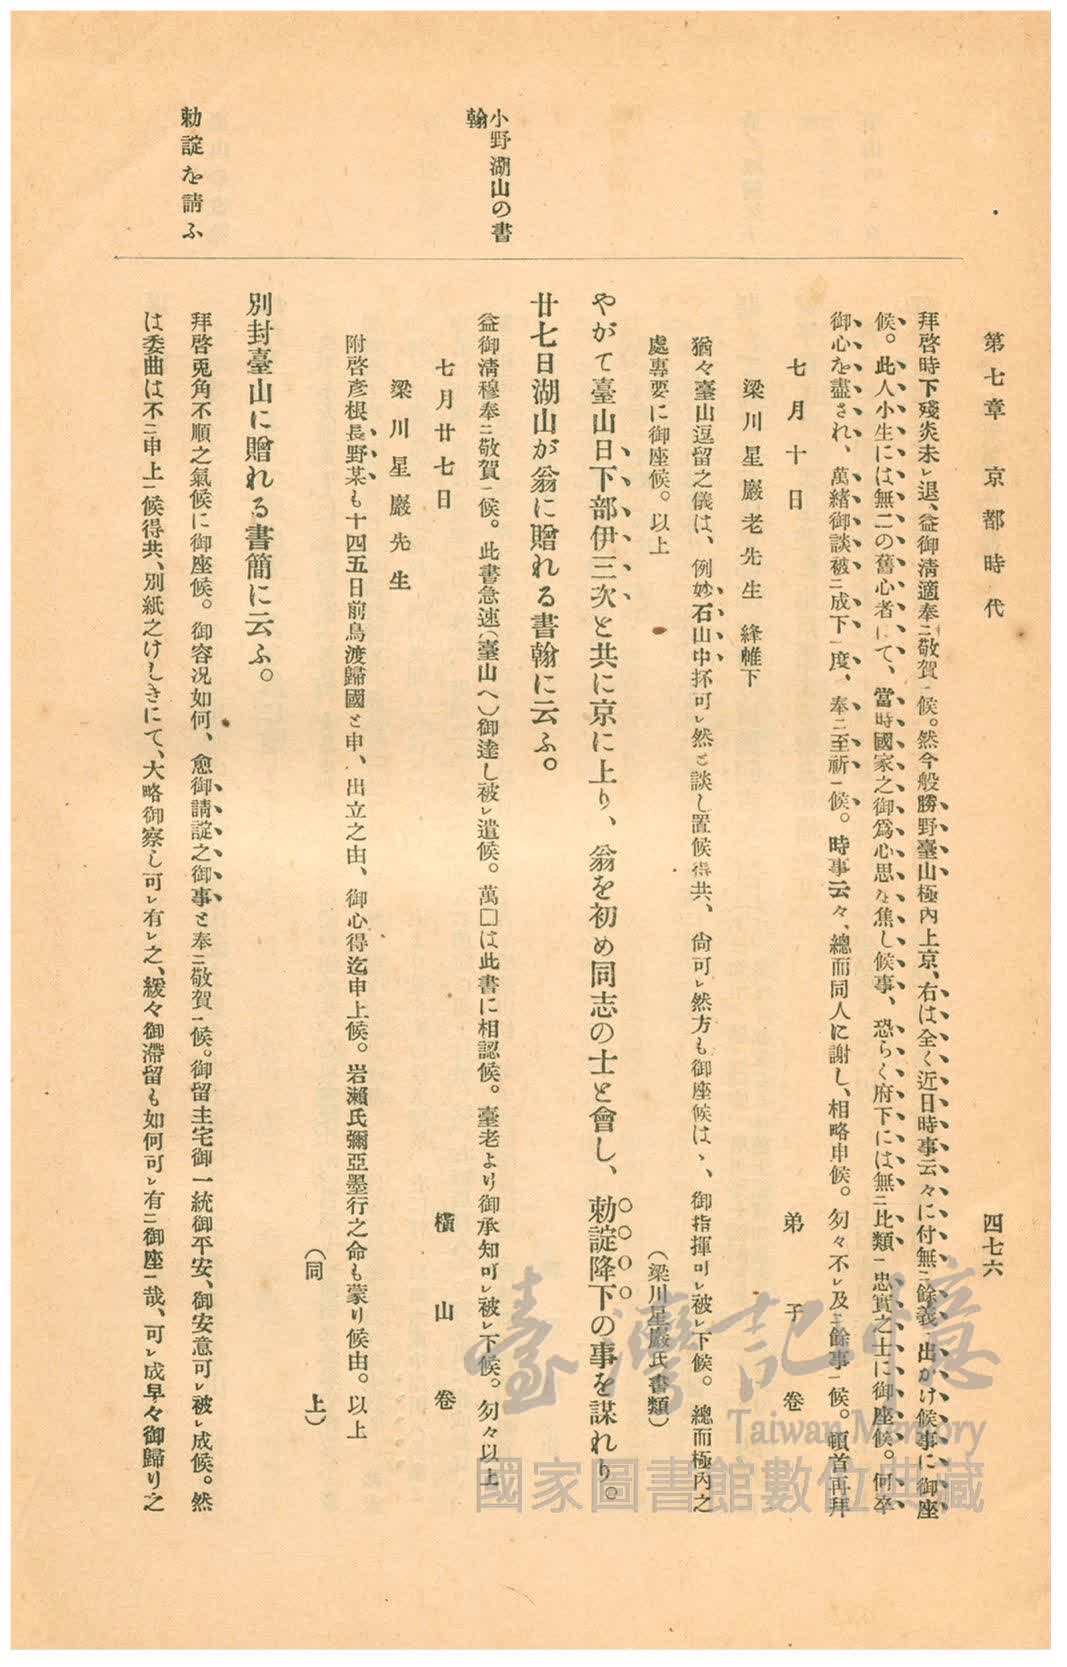 第七章 京都時代
四七六
拜啓時下殘炎未レ退、益御淸適奉ニ敬賀一候。然今般勝野臺山極內上京、右は全く近日時事云々に付無ニ餘義一出かけ候事に御座
候。此人小生には無二の舊心者にて、當時國家之御爲心思を焦し候事、恐らく府下には無ニ比類一忠實之士に御座候。何卒
御心を盡され、萬緖御談被ニ成下一度、奉ニ至祈一候。時事云々、總而同人に謝し、相略申候。匆々不レ及ニ餘事一候。頓首再拜
七月十日
弟子 卷
梁川星巖老先生 絳帷下
猶々臺山逗留之儀は、例妙石山中抔可レ然と談し置候得共、尙可レ然方も御座候はゝ、御指揮可レ被レ下候。總而極內之
處專要に御座候。以上
(梁川星巖氏書類)
やがて臺山日下部伊三次と共に京に上り、翁を初め同志の士と會し、勅諚降下の事を謀れり。
小野湖山の書
翰
廿七日湖山が翁に贈れる書翰に云ふ。
益御淸穆奉ニ敬賀一候。此書急速(臺山へ)御達し被レ遣候。萬□は此書に相認候。臺老より御承知可レ被レ下候。匆々以上
七月廿七日
橫山 卷
梁川星巖先生
附啓彥根長野某も十四五日前鳥渡歸國と申、出立之由、御心得迄申上候。岩瀨氏彌亞墨行之命も蒙り候由。以上
(同 上)
別封臺山に贈れる書簡に云ふ。
勅諚を請ふ
拜啓兎角不順之氣候に御座候。御容況如何、愈御請諚之御事と奉ニ敬賀一候。御留主宅御一統御平安、御安意可レ被レ成候。然
は委曲は不ニ申上一候得共、別紙之けしきにて、大略御察し可レ有レ之、緩々御滯留も如何可レ有ニ御座一哉、可レ成早々御歸り之
臺灣記憶
Taiwan Memory
國家圖書館數位典藏